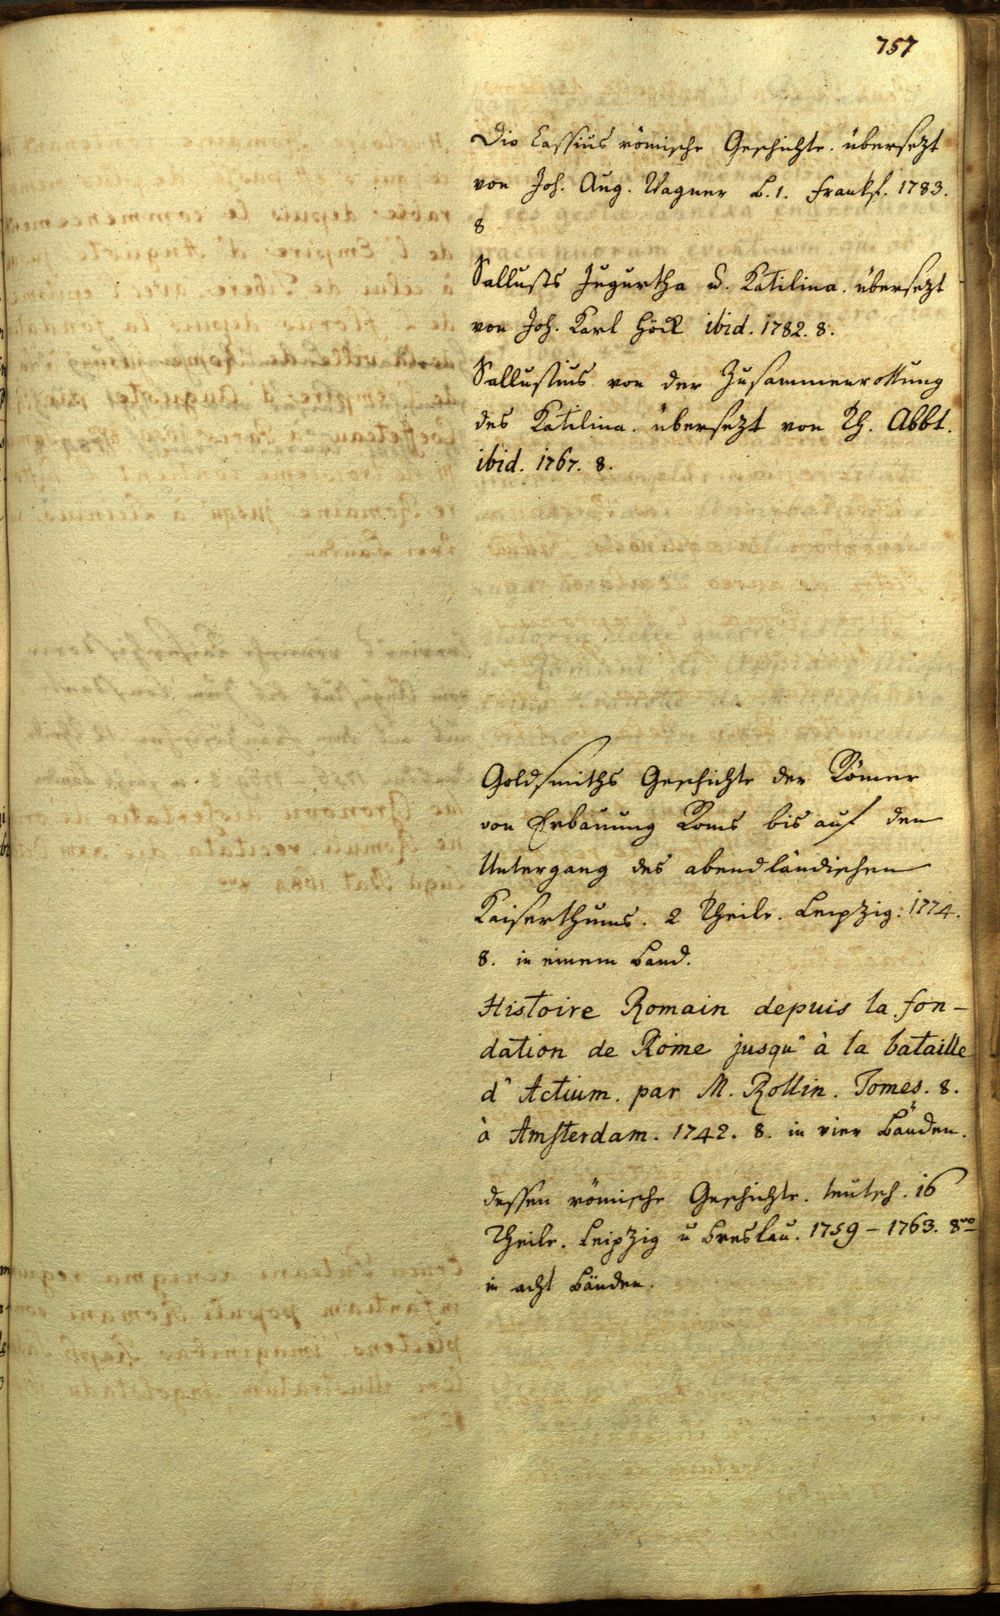 757
Dio Cassius römische Geschichte. übersezt
von Joh. Aug. Wagner B. 1. Frankf. 1783.
8
Sallusts Jugurtha u. Katilina. übersezt
von Joh. Karl Höck ibid. 1782. 8.
Sallustius von der Zusammenrottung
des Katilina. übersezt von Th. Abbt.
ibid. 1767. 8.
Goldsmiths Geschichte der Römer
von Erbauung Roms bis auf den
Untergang des abendländischen
Kaiserthums. 2 Theile. Leipzig. 1774.
8. in einem Band.
Histoire Romain depuis la fon-
dation de Rome jusqu' à la bataille
d' Actium. par M. Rollin. Tomes. 8.
à Amsterdam. 1742. 8. in vier Bänden.
dessen römische Geschichte. teutsch. 16
Theile. Leipzig u Breslau. 1759 - 1763. 8vo
in acht Bänden.